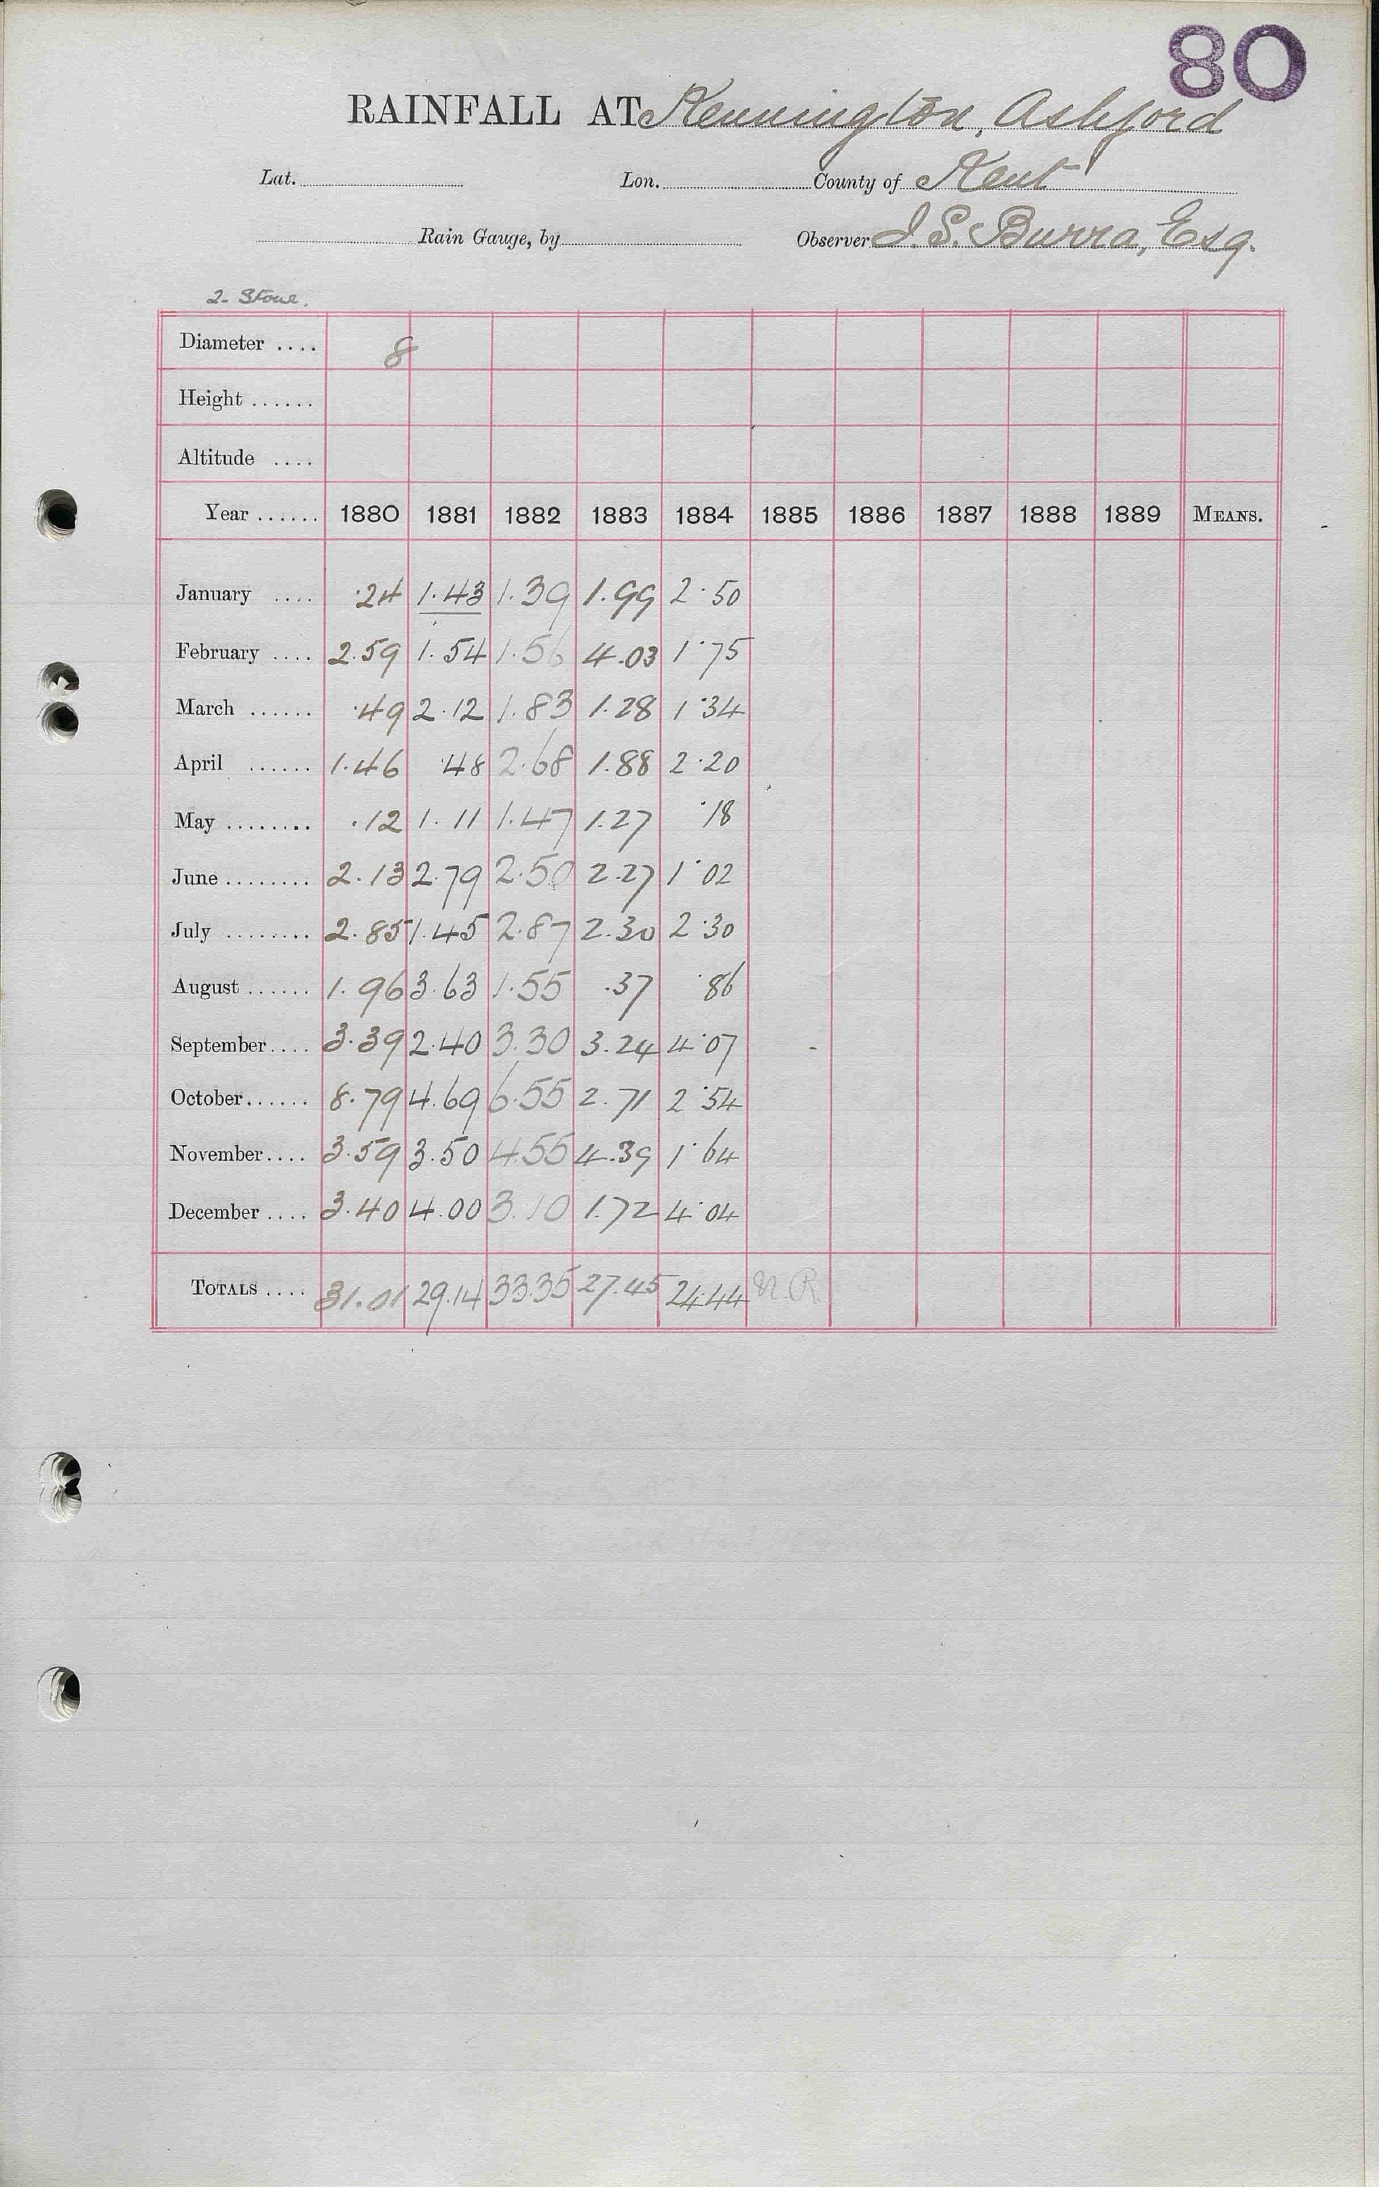 80
RAINFALL AT Kennington, Ashford
Lat. Lon. County of Kent
Rain Gauge, by Observer J. S. Burra, Esq.
2- Stour.
Diameter .... 8
Height ......
Altitude ....
Year ...... 1880 1881 1882 1883 1884 1885 1886 1887 1888 1889 MEANS.
January .... .24 1.43 1.39 1.99 2.50
February .... 2.59 1.54 1.56 4.03 1.75
March ...... .49 2.12 1.83 1.28 1.34
April ...... 1.46 .48 2.68 1.88 2.20
May ........ .12 1.11 1.47 1.27 .18
June ........ 2.13 2.79 2.50 2.27 1.02
July ........ 2.85 1.45 2.87 2.30 2.30
August ...... 1.96 3.63 1.55 .37 .86
September .... 3.39 2.40 3.30 3.24 4.07
October ...... 8.79 4.69 6.55 2.71 2.54
November .... 3.59 3.50 4.55 4.39 1.64
December .... 3.40 4.00 3.10 1.72 4.04
TOTALS .... 31.01 29.14 33.35 27.45 24.44 N.R.